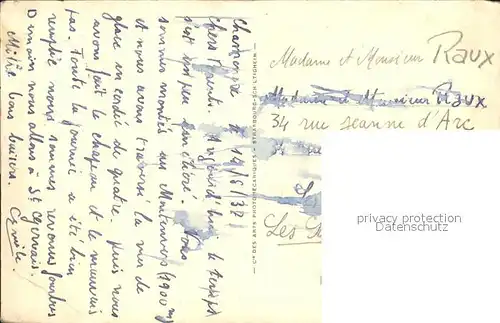 Chamonix le 14/8/32
Chers Parents. Aujourd'hui le temps
s'est un peu éclairci. Nous
sommes montés au Montenvers (1900 m)
et nous avons traversé la mer de
glace en cordée de quatre puis nous
avons fait le chapeau et le mauvais
pas. Toute la journée a été bien
remplie nous sommes revenus
Demain nous allons à St Gervais.
bons baisers.
C^IE DES ARTS PHOTOMÉCANIQUES - STRASBOURG-SCHILTIGHEIM
Madame et Monsieur Raux
Madame et Monsieur Raux
34 rue Jeanne d'Arc
Les
privacy protection
watermark